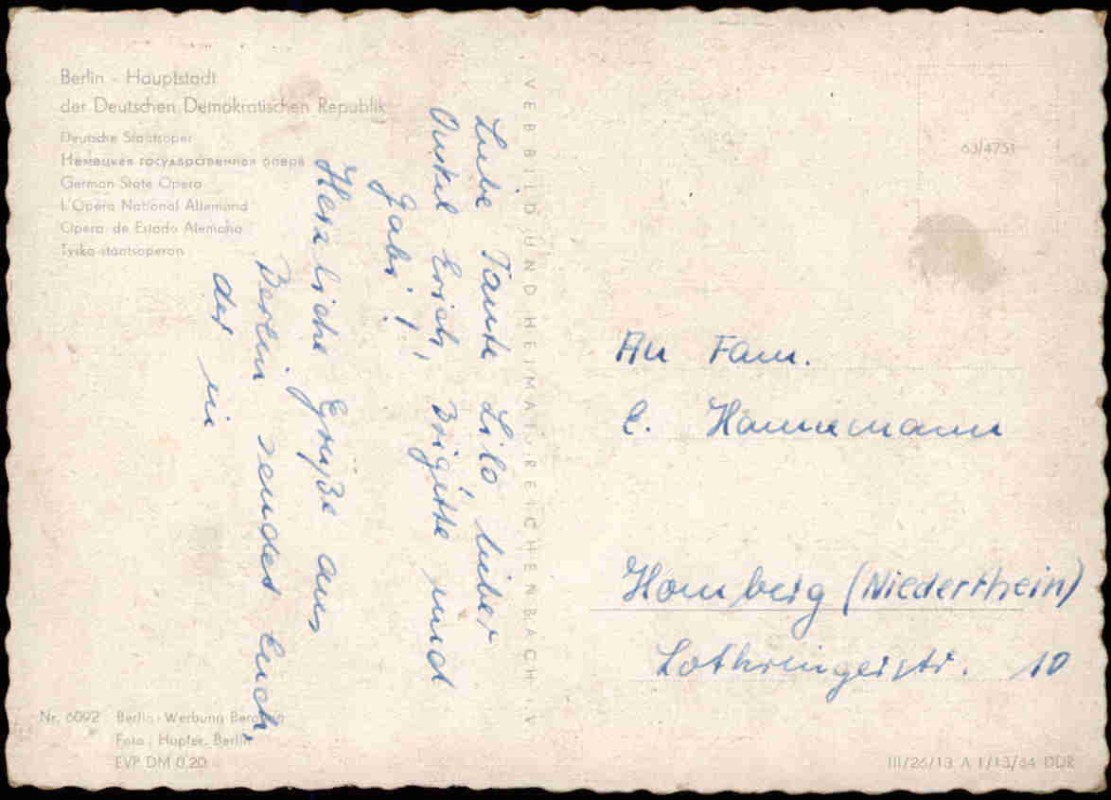 Berlin - Hauptstadt
der Deutschen Demokratischen Republik
Deutsche Staatsoper
Немецкая государственная опера
German State Opera
L'Opéra National Allemand
Opera de Estado Alemana
Tyska statsoperan
Liebe Tante Lilo, lieber
Onkel Erich, Brigitte und
Gabi!
Herzliche Grüße aus
Berlin sendet Euch,
der in
VEB BILD UND HEIMAT REICHENBACH I. V
63/4751
An Fam.
E. Hannemann
Homberg (Niederrhein)
Lothringerstr. 10
Nr. 6092 Berlin-Werbung
Foto: Hupfer, Berlin
EVP DM 0,20
III/26/13 A 1/13/64 DDR